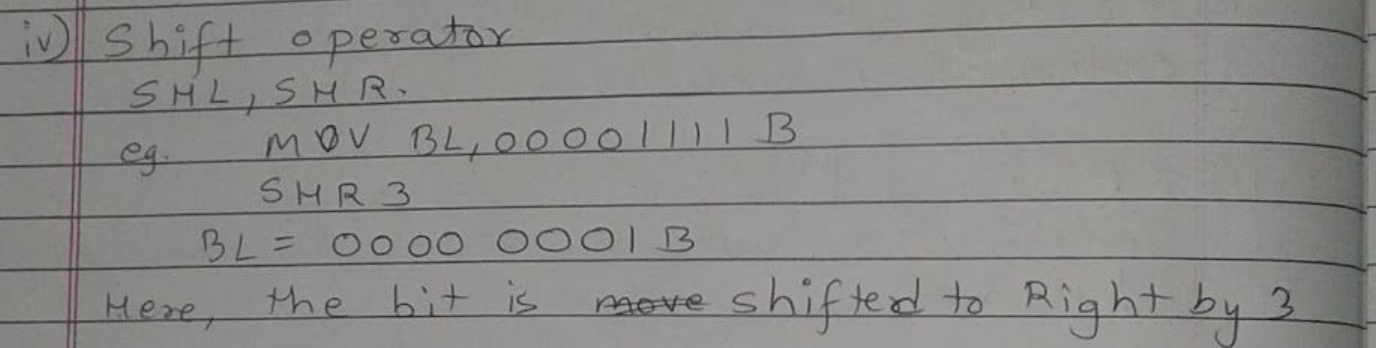 iv) Shift operator
SHL, SHR.
eg. MOV BL, 00001111 B
SHR 3
BL = 0000 0001 B
Here, the bit is move shifted to Right by 3